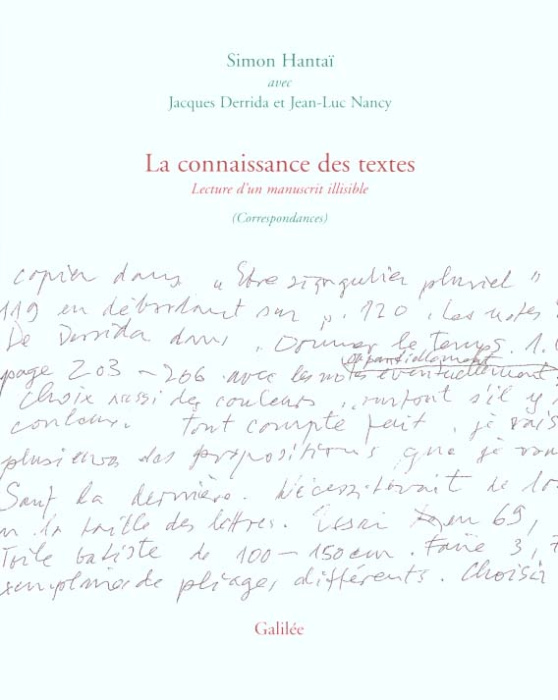 Simon Hantaï
avec
Jacques Derrida et Jean-Luc Nancy
La connaissance des textes
Lecture d'un manuscrit illisible
(Correspondances)
copier dans „Être singulier pluriel"
119 en débordant sur p. 120. Les notes
De Derrida dans, Donner le temps. 1.
et partiellement
page 203 – 206 avec les notes éventuellement
Choix aussi des couleurs, surtout s'il y
couleur. Tout compte fait, je vais
plusieurs des propositions que je
Sauf la dernière. Nécessiterait de
la taille des lettres. Essai en 69,
Toile batiste de 100 – 150 cm. Faire 3,
exemplaires de pliages différents. Choisir
Galilée